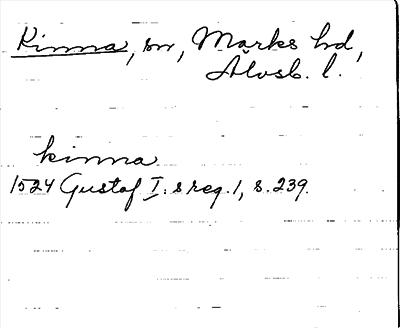 Kinna, sn, Marks hd,
Älvsb. l.
kinna
1524 Gustaf I:s reg. 1, s. 239.